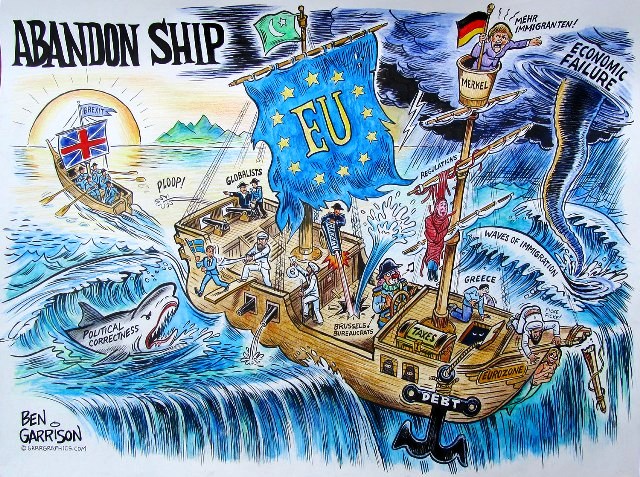 ABANDON SHIP
MEHR
IMMIGRANTEN!
ECONOMIC
FAILURE
MERKEL
BREXIT
EU
PLOOP!
GLOBALISTS
REGULATIONS
WAVES OF IMMIGRATION
GREECE
POLITICAL
CORRECTNESS
BRUSSELS
BUREAUCRATS
TAXES
EUROZONE
DEBT
BEN
GARRISON
© GRRRGRAPHICS.COM